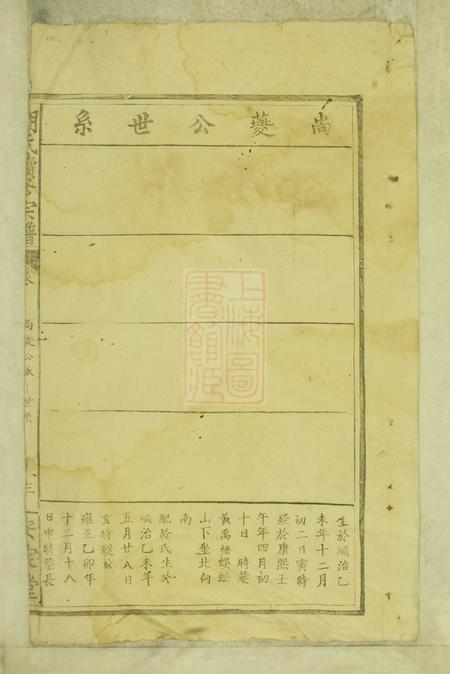 尚夔公世系
生於順治乙
未年十二月
初二日寅時
歿於康熙壬
午年四月初
十日 時葬
黃禹橋蜈蚣
山下坐北向
南
配於氏生於
順治乙未年
五月廿八日
亥時歿於
雍正乙卯年
十二月十八
日申時葬長
氏續修宗譜
上海圖書館藏